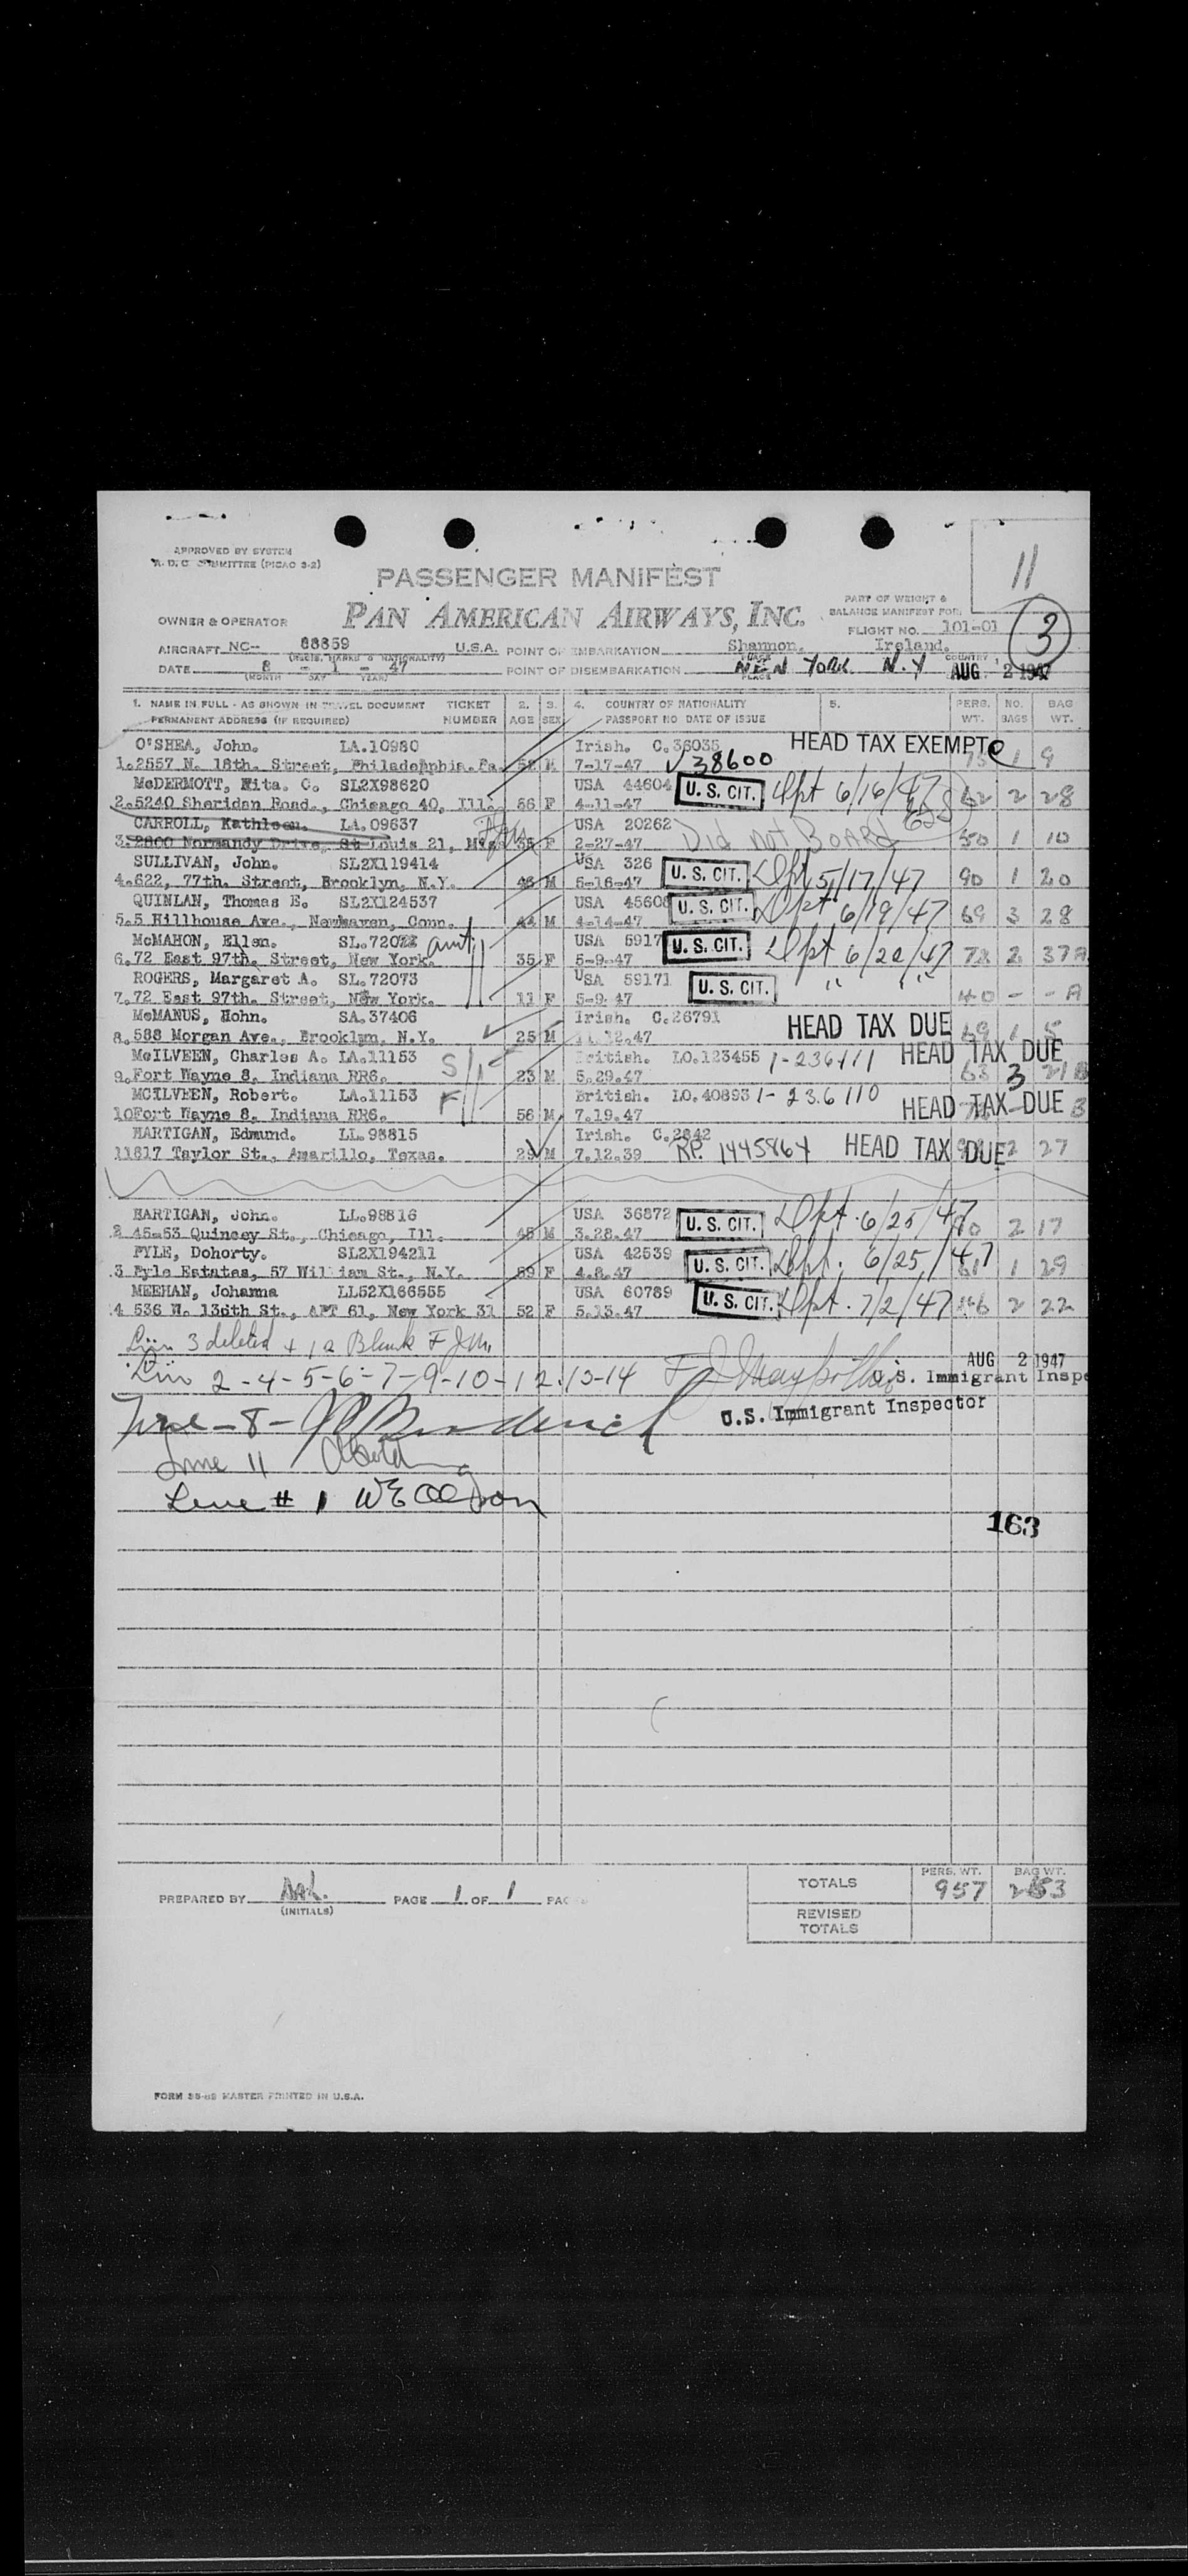 APPROVED BY SYSTEM
A. D. C. COMMITTEE (PICAO 3-2)
11
PASSENGER MANIFEST
PAN AMERICAN AIRWAYS, INC.
PART OF WEIGHT &
BALANCE MANIFEST FOR
FLIGHT NO. 101-01
3
OWNER & OPERATOR
AIRCRAFT NC- 88859 U.S.A. POINT OF EMBARKATION Shannon. Ireland.
(REGIS. MARKS & NATIONALITY) PLACE COUNTRY
DATE 8 - 1 - 47 POINT OF DISEMBARKATION NEW YORK N.Y AUG 2 1947
(MONTH DAY YEAR) PLACE
1. NAME IN FULL - AS SHOWN IN TRAVEL DOCUMENT TICKET 2. 3. 4. COUNTRY OF NATIONALITY 5. PERS. NO. BAG
PERMANENT ADDRESS (IF REQUIRED) NUMBER AGE SEX PASSPORT NO DATE OF ISSUE WT. BAGS WT.
O'SHEA, John. LA.10980 Irish. C.36035 HEAD TAX EXEMPT
1.2557 N. 18th. Street, Philadephhia.Pa. 52 M 7-17-47 38600 75 1 9
McDERMOTT, Nita. C. SL2X98620 USA 44604 U. S. CIT. Dpt 6/16/47
2.5240 Sheridan Road., Chicago 40, Ill. 66 F 4-11-47 62 2 28
CARROLL, Kathleen. LA.09637 USA 20262 Did not Board
3.2800 Normandy Drive, St Louis 21, 35 F 2-27-47 50 1 10
SULLIVAN, John. SL2X119414 USA 326 U. S. CIT. Dpt 5/17/47
4.622, 77th. Street, Brooklyn, N.Y. 46 M 5-16-47 90 1 20
QUINLAN, Thomas E. SL2X124537 USA 45608 U. S. CIT. Dpt 6/19/47
5.5 Hillhouse Ave., Newhaven, Conn. 44 M 4-14-47 69 3 28
McMAHON, Ellen. SL.72072 aunt USA 5917 U. S. CIT. Dpt 6/20/47
6.72 East 97th. Street, New York. 35 F 5-9-47 72 2 37A
ROGERS, Margaret A. SL.72073 USA 59171 U. S. CIT. " "
7.72 East 97th. Street, New York. 11 F 5-9.47 40 - - A
McMANUS, Hohn. SA.37406 Irish. C.26791 HEAD TAX DUE
8.588 Morgan Ave., Brooklyn, N.Y. 25 M 11.12.47 69 1 5
McILVEEN, Charles A. LA.11153 British. LO.123455 1-236111 HEAD TAX DUE
9.Fort Wayne 8, Indiana RR6. 23 M 5.29.47 63 3 21B
MCILVEEN, Robert. LA.11153 F British. LO.40893 1-236110 HEAD TAX DUE
10Fort Wayne 8, Indiana RR6. 56 M 7.19.47 B
HARTIGAN, Edmund. LL.98815 Irish. C.2642 RP. 1445864 HEAD TAX DUE
11817 Taylor St., Amarillo, Texas. 29 M 7.12.39 2 27
HARTIGAN, John. LL.98816 USA 36872 U. S. CIT. Dpt. 6/25/47
2 45-53 Quincey St., Chicago, Ill. 45 M 3.28.47 2 17
PYLE, Dohorty. SL2X194211 USA 42539 U. S. CIT. Dpt. 6/25/47
3 Pyle Estates, 57 William St., N.Y. 59 F 4.8.47 61 1 29
MEEHAN, Johanna LL52X166555 USA 60789 U. S. CIT. Dpt. 7/2/47
4 536 W. 136th St., APT 61, New York 31 52 F 5.13.47 2 22
Lin 3 deleted + 12 Blank FJM.
AUG 2 1947
Lin 2-4-5-6-7-9-10-12-13-14 U.S. Immigrant Inspe
U.S. Immigrant Inspector
Line - 8 -
Line 11
Line # 1
163
TOTALS PERS. WT. 957 BAG WT. 253
PREPARED BY PAGE 1 OF 1
(INITIALS)
REVISED
TOTALS
FORM 35-82 MASTER PRINTED IN U.S.A.